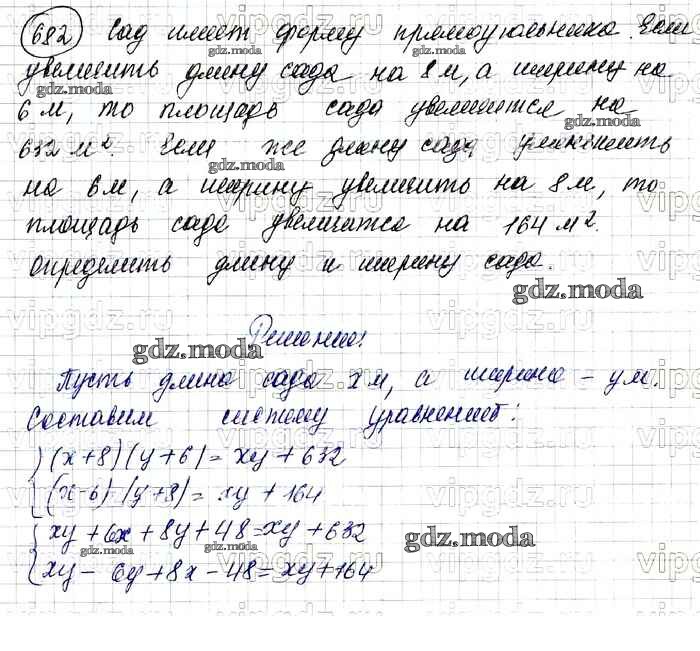 682 Сад имеет форму прямоугольника. Если
увеличить длину сада на 8 м, а ширину на
6 м, то площадь сада увеличится на
632 м². Если же длину сада уменьшить
на 6 м, а ширину увеличить на 8 м, то
площадь сада увеличится на 164 м².
Определить длину и ширину сада.
gdz.moda
Решение:
gdz.moda
Пусть длина сада x м, а ширина – y м.
Составим систему уравнений:
{(x+8)(y+6)=xy+632
{(x-6)(y+8)=xy+164
{xy+6x+8y+48=xy+632
gdz.moda
{xy-6y+8x-48=xy+164